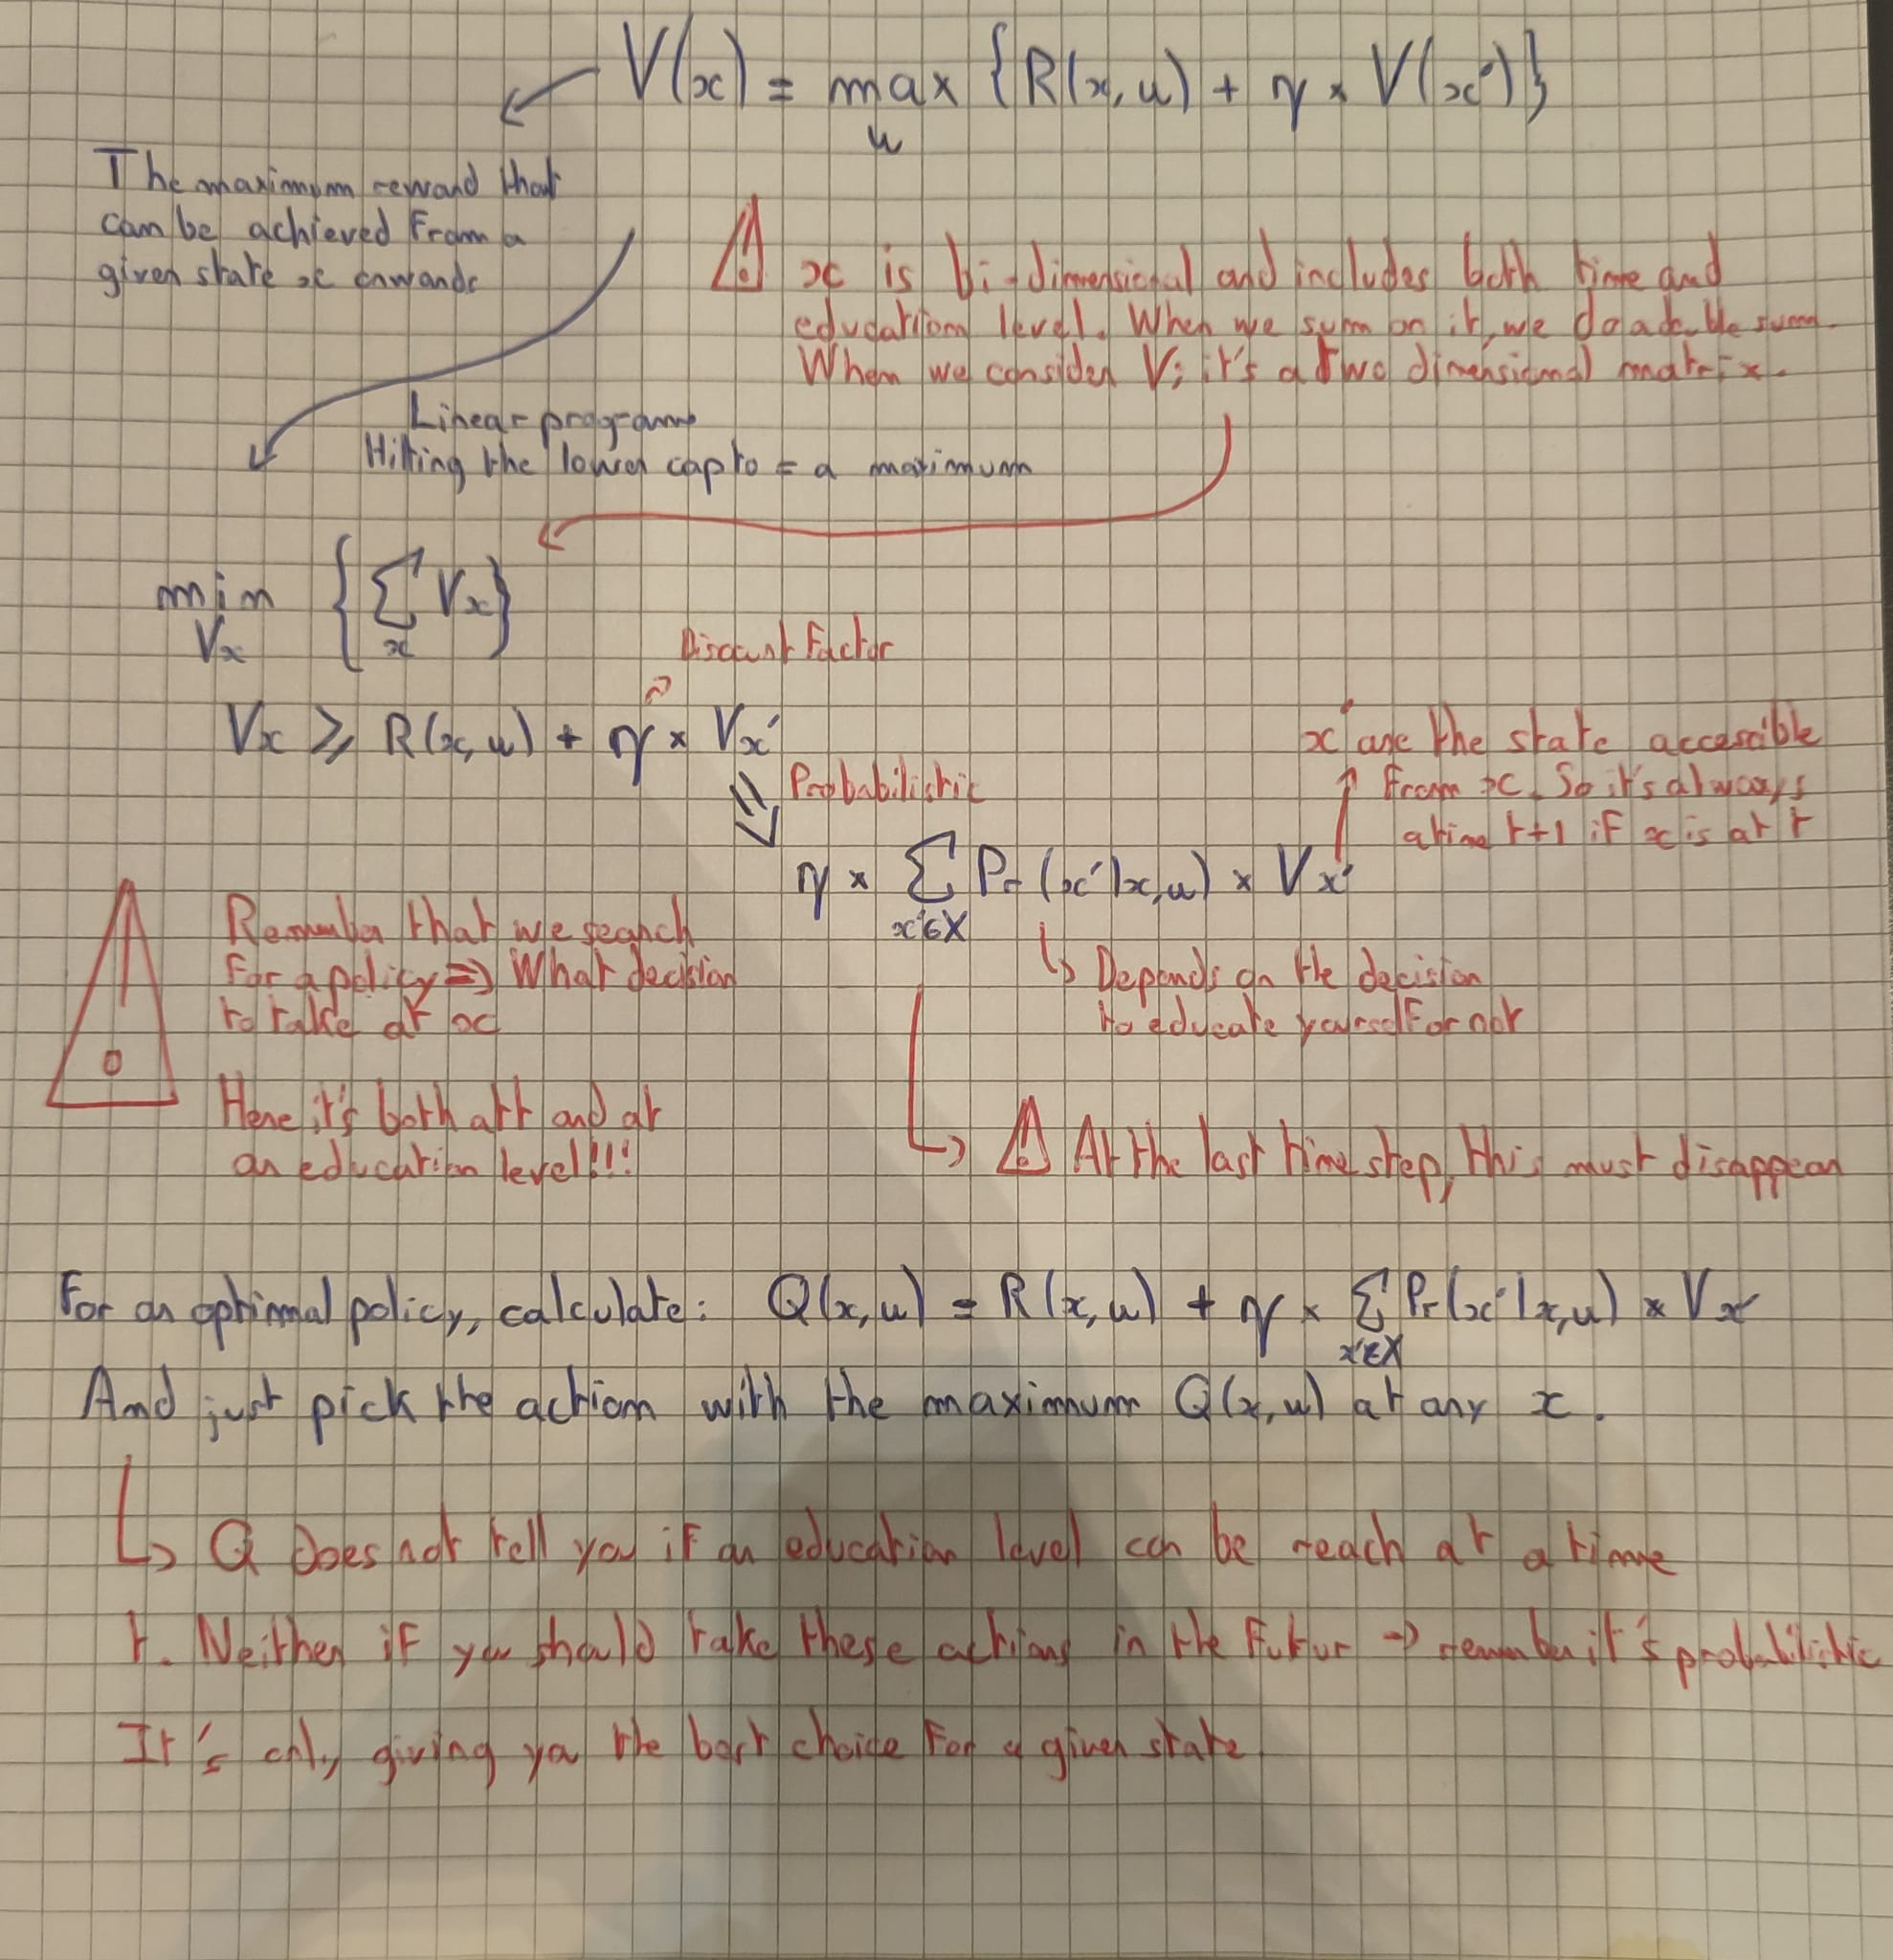 V(x) = max {R(x,u) + η × V(x')}
u
The maximum reward that
can be achieved From a
given state x onwards
x is bi-dimensional and includes both time and
education level. When we sum on it, we do a double sum.
When we consider V, it's a two dimensional matrix.
Linear programs
Hitting the lower cap to = a maximum
min { Σ Vx }
Vx x
Discount Factor
Vx ≥ R(x,u) + η × Vx'
Probabilistic
x' are the state accessible
From x. So it's always
a time t+1 if x is at t
η × Σ Pr(x'|x,u) × Vx'
x'∈X
Remember that we search
For a policy => What decision
to take at x
Depends on the decision
to educate yourself or not
Here it's both at t and at
an education level!!!
At the last time step, this must disappear
For an optimal policy, calculate: Q(x,u) = R(x,u) + η × Σ Pr(x'|x,u) × Vx'
x'∈X
And just pick the action with the maximum Q(x,u) at any x.
Q Does not tell you if an education level can be reach at a time
t. Neither if you should take these actions in the Futur → remember it's probabilistic
It's only giving you the best choice For a given state